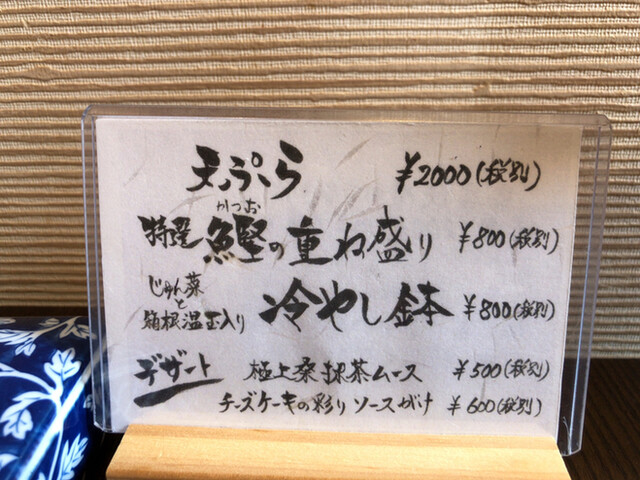 天ぷら ¥2000(税別)
かつお
特選 鰹の重ね盛り ¥800(税別)
じゅん菜
と
箱根温玉入り 冷やし鉢 ¥800(税別)
デザート 極上桑抹茶ムース ¥500(税別)
チーズケーキの彩りソースがけ ¥600(税別)